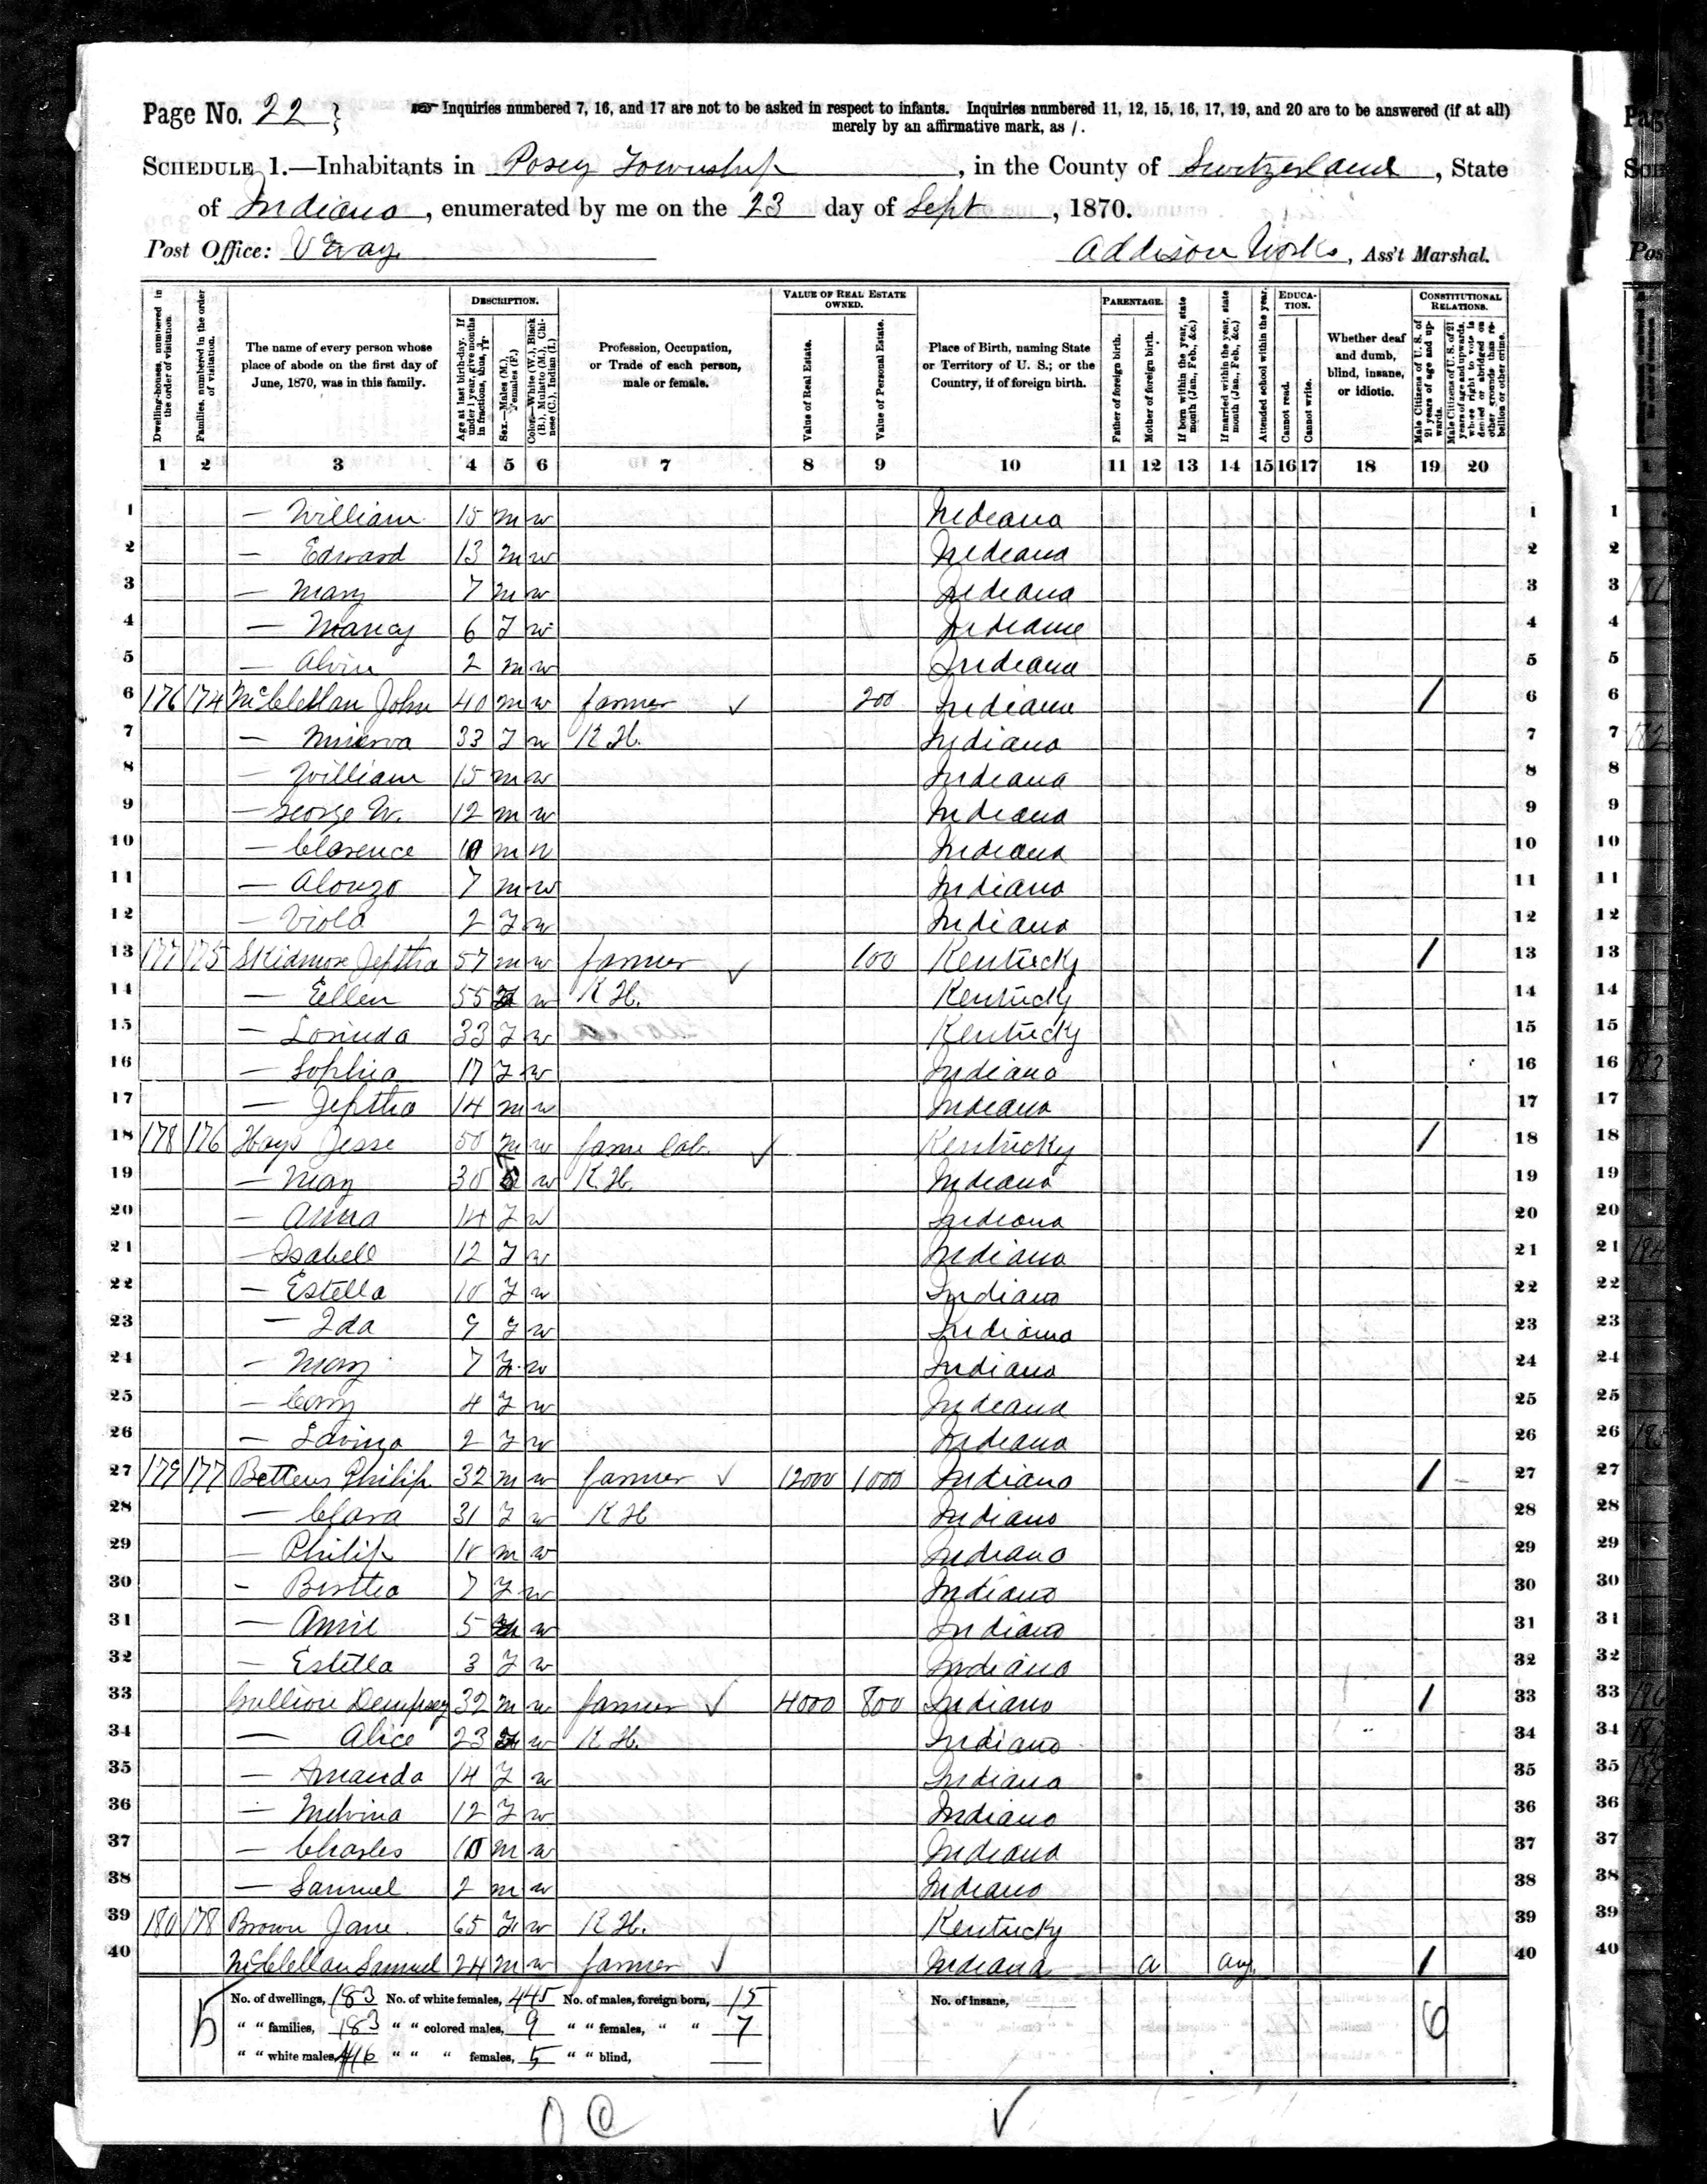 Page No. 22
Inquiries numbered 7, 16, and 17 are not to be asked in respect to infants. Inquiries numbered 11, 12, 15, 16, 17, 19, and 20 are to be answered (if at all)
merely by an affirmative mark, as /.
SCHEDULE 1.—Inhabitants in Posey Township, in the County of Switzerland, State
of Indiana, enumerated by me on the 23 day of Sept, 1870.
Post Office: Vevay
Addison Works, Ass't Marshal.
Dwelling-houses, numbered in the order of visitation.
Families, numbered in the order of visitation.
The name of every person whose place of abode on the first day of June, 1870, was in this family.
DESCRIPTION.
Age at last birth-day. If under 1 year, give months in fractions, thus,
Sex.—Males (M.), Females (F.)
Color.—White (W.), Black (B.), Mulatto (M.), Chinese (C.), Indian (I.)
Profession, Occupation, or Trade of each person, male or female.
VALUE OF REAL ESTATE OWNED.
Value of Real Estate.
Value of Personal Estate.
Place of Birth, naming State or Territory of U. S.; or the Country, if of foreign birth.
PARENTAGE.
Father of foreign birth.
Mother of foreign birth.
If born within the year, state month (Jan., Feb., &c.)
If married within the year, state month (Jan., Feb., &c.)
Attended school within the year.
EDUCATION.
Cannot read.
Cannot write.
Whether deaf and dumb, blind, insane, or idiotic.
CONSTITUTIONAL RELATIONS.
Male Citizens of U. S. of 21 years of age and upwards.
Male Citizens of U. S. of 21 years of age and upwards, whose right to vote is denied or abridged on other grounds than rebellion or other crime.
1 2 3 4 5 6 7 8 9 10 11 12 13 14 15 16 17 18 19 20
1 — William 15 m w Indiana 1
2 — Edward 13 m w Indiana 2
3 — Mary 7 m w Indiana 3
4 — Nancy 6 F w Indiana 4
5 — Alvin 2 m w Indiana 5
6 176 174 McClellan John 40 m w farmer 200 Indiana / 6
7 — Minerva 33 F w K H. Indiana 7
8 — William 15 m w Indiana 8
9 — George W. 12 m w Indiana 9
10 — Clarence 10 m w Indiana 10
11 — Alonzo 7 m w Indiana 11
12 — Viola 2 F w Indiana 12
13 177 175 Skidmore Jeptha 57 m w farmer 100 Kentucky / 13
14 — Eellen 55 F w K H. Kentucky 14
15 — Lorinda 33 F w Kentucky 15
16 — Sophia 17 F w Indiana 16
17 — Jeptha 14 m w Indiana 17
18 178 176 Hays Jesse 50 m w farm lab. Kentucky / 18
19 — Mary 30 F w K. H. Indiana 19
20 — Anna 14 F w Indiana 20
21 — Isabell 12 F w Indiana 21
22 — Estella 10 F w Indiana 22
23 — Ida 9 F w Indiana 23
24 — Mary 7 F w Indiana 24
25 — 4 F w Indiana 25
26 — 2 F w Indiana 26
27 179 177 Bettens Philip 32 m w farmer 12000 1000 Indiana / 27
28 — Clara 31 F w K H Indiana 28
29 — Philip 10 m w Indiana 29
30 — Bertha 7 F w Indiana 30
31 — Annie 5 w Indiana 31
32 — Estella 3 F w Indiana 32
33 Gullion Dempsey 32 m w farmer 4000 800 Indiana / 33
34 — Alice 23 F w K H. Indiana 34
35 — Amanda 14 F w Indiana 35
36 — Melvina 12 F w Indiana 36
37 — Charles 10 m w Indiana 37
38 — Samuel 2 m w Indiana 38
39 180 178 Brown Jane 65 F w K H. Kentucky 39
40 McClellan Samuel 24 m w farmer Indiana a Aug / 40
No. of dwellings, 183 No. of white females, 445 No. of males, foreign born, 15 No. of insane,
" " families, 183 " " colored males, 9 " " females, " " 7 6
" " white males, 416 " " " females, 5 " " blind,